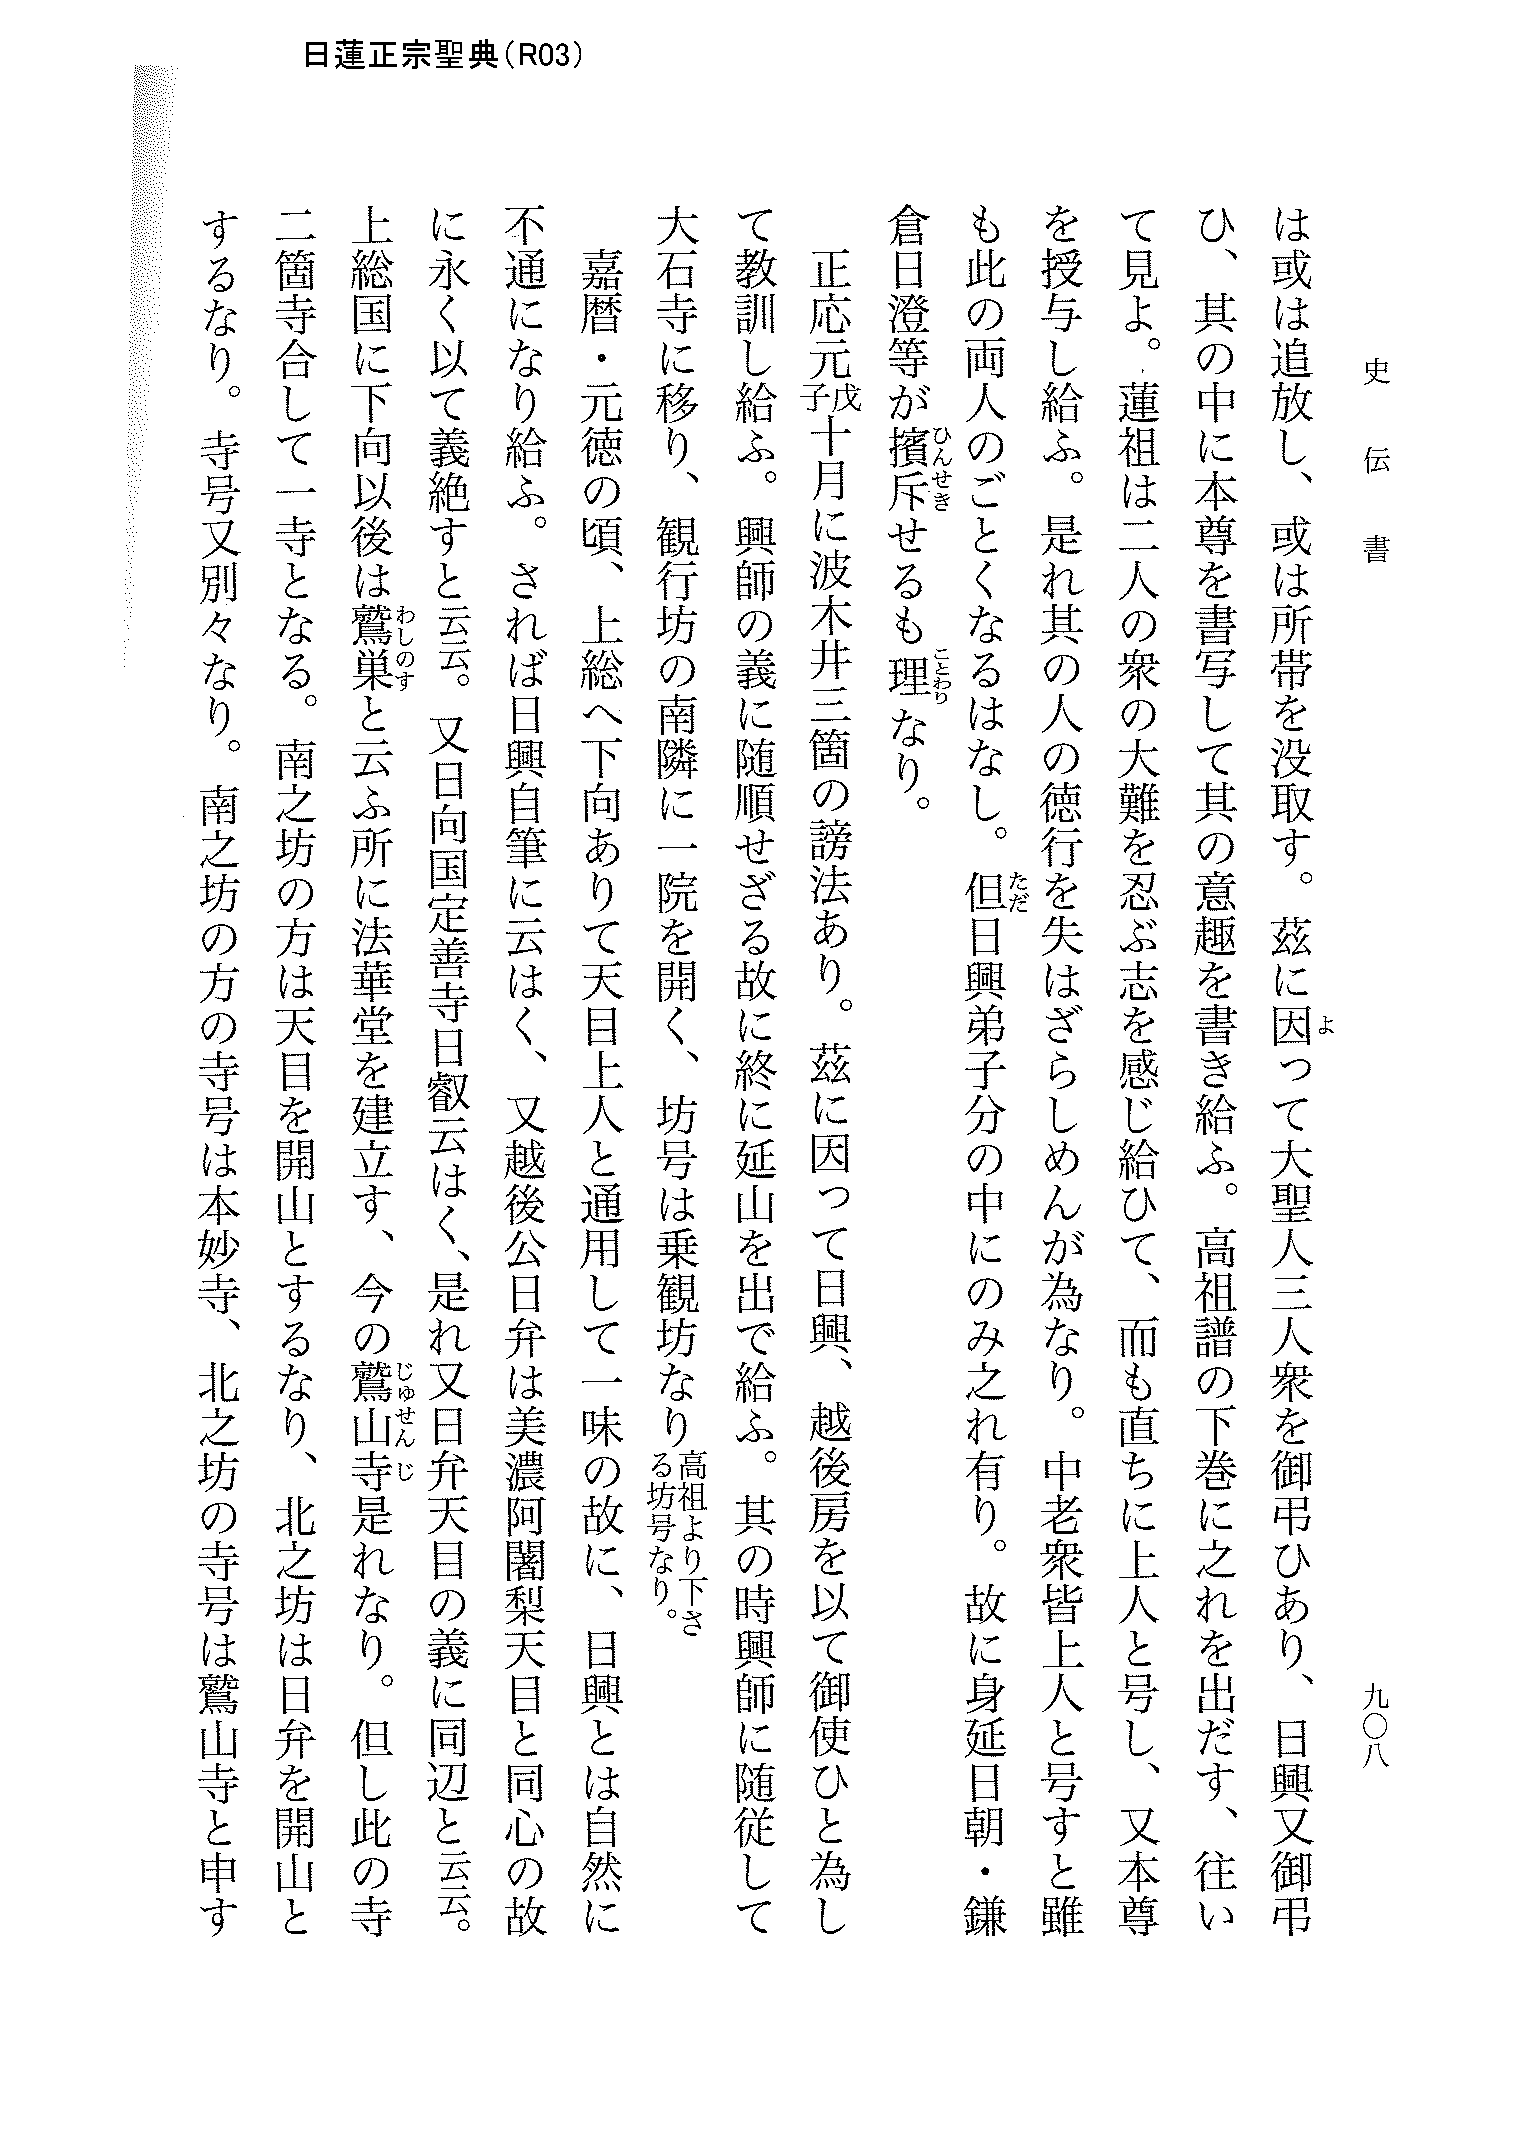 日蓮正宗聖典(R03)
史伝書
九〇八
は或は追放し、或は所帯を没取す。茲に因って大聖人三人衆を御弔ひあり、日興又御弔
ひ、其の中に本尊を書写して其の意趣を書き給ふ。高祖譜の下巻に之れを出だす、往い
て見よ。蓮祖は二人の衆の大難を忍ぶ志を感じ給ひて、而も直ちに上人と号し、又本尊
を授与し給ふ。是れ其の人の徳行を失はざらしめんが為なり。中老衆皆上人と号すと雖
も此の両人のごとくなるはなし。但日興弟子分の中にのみ之れ有り。故に身延日朝・鎌
倉日澄等が擯斥せるも理なり。
正応元戊子十月に波木井三箇の謗法あり。茲に因って日興、越後房を以て御使ひと為し
て教訓し給ふ。興師の義に随順せざる故に終に延山を出で給ふ。其の時興師に随従して
大石寺に移り、観行坊の南隣に一院を開く、坊号は乗観坊なり高祖より下さる坊号なり。
嘉暦・元徳の頃、上総へ下向ありて天目上人と通用して一味の故に、日興とは自然に
不通になり給ふ。されば日興自筆に云はく、又越後公日弁は美濃阿闍梨天目と同心の故
に永く以て義絶すと云云。又日向国定善寺日叡云はく、是れ又日弁天目の義に同辺と云云。
上総国に下向以後は鷲巣と云ふ所に法華堂を建立す、今の鷲山寺是れなり。但し此の寺
二箇寺合して一寺となる。南之坊の方は天目を開山とするなり、北之坊は日弁を開山と
するなり。寺号又別々なり。南之坊の方の寺号は本妙寺、北之坊の寺号は鷲山寺と申す